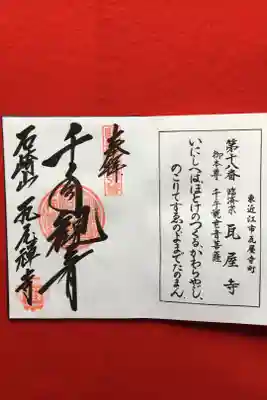 東近江市瓦屋寺町
第十八番 臨済宗 瓦屋寺
御本尊 千手観世音菩薩
いにしへはほとけのつくるかわらやし、
のこりてすゑのよまでたのまん
奉拝
千手観音
石崎山 瓦屋禅寺